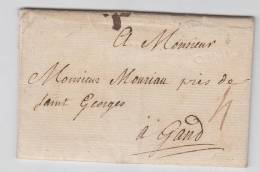 A Monsieur
Monsieur Mouriau près de
Saint Georges
à Gand